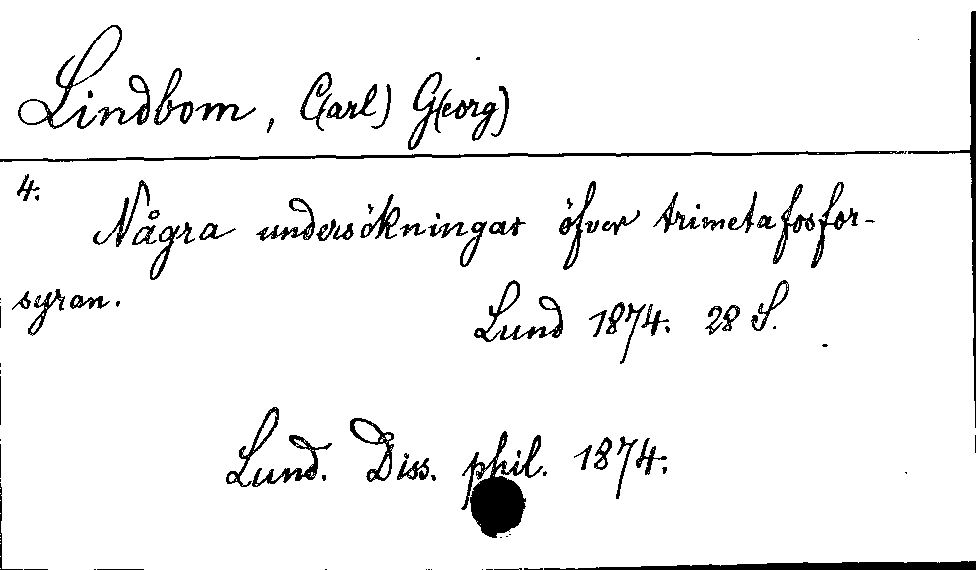 Lindbom, C(arl) G(eorg)
4.
Några undersökningar öfver trimetafosfor-
syran.
Lund 1874. 28 S.
Lund. Diss. phil. 1874.